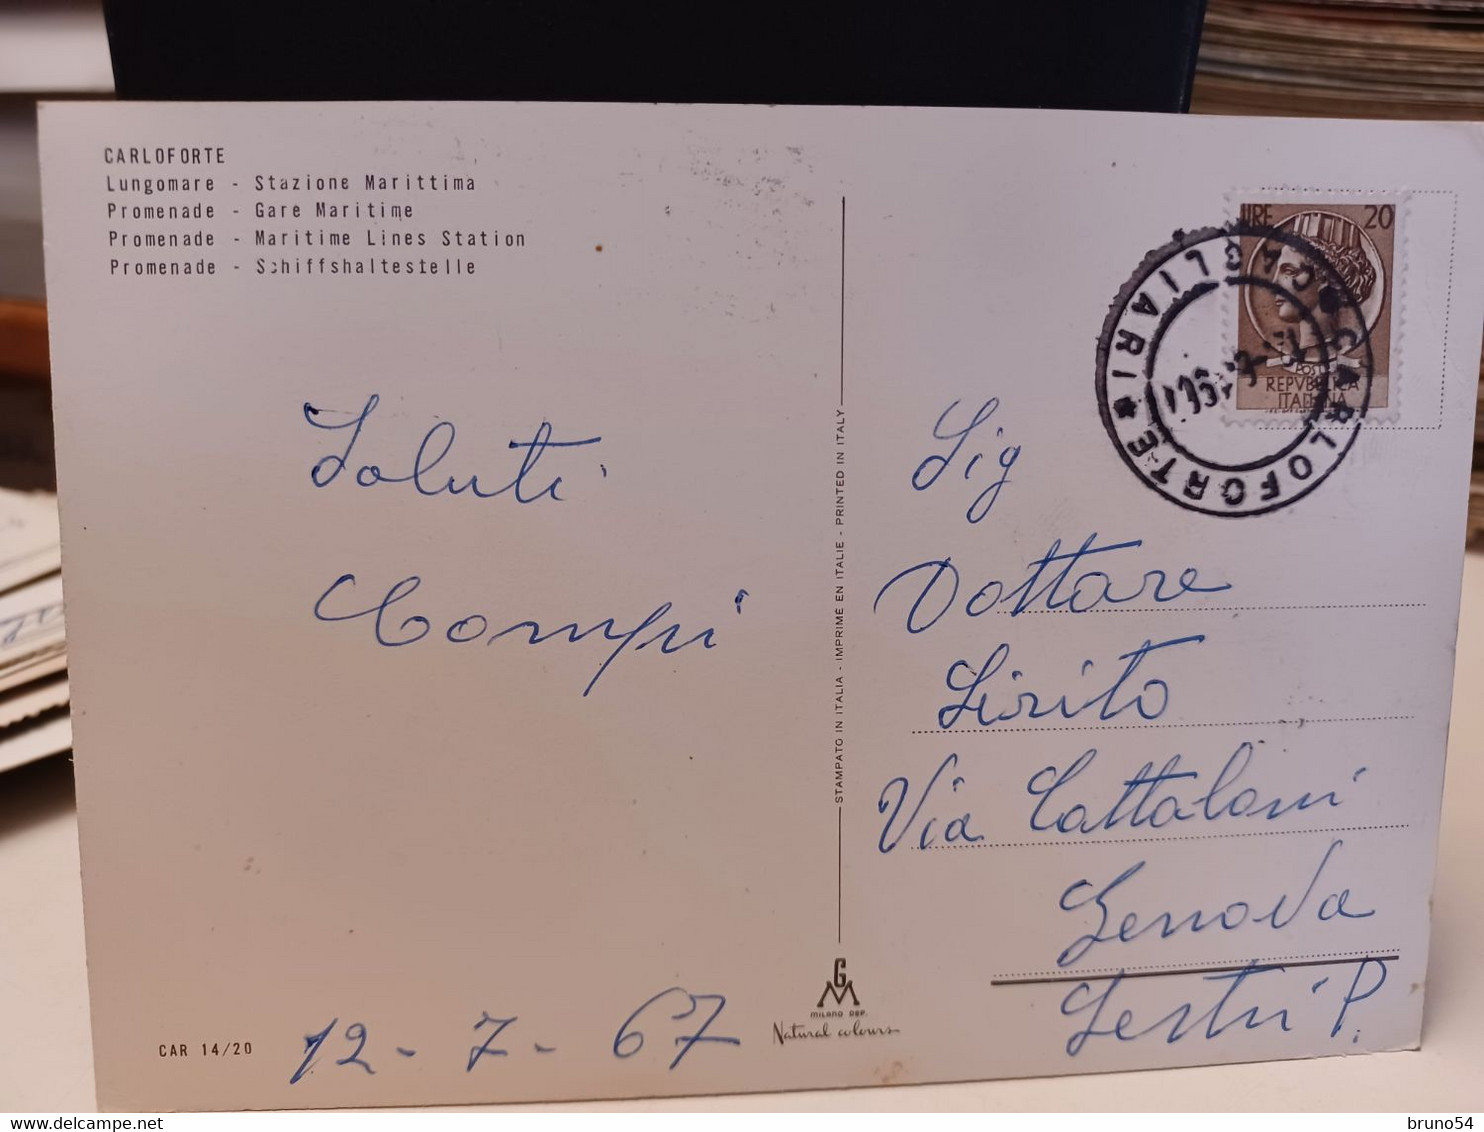 CARLOFORTE
Lungomare - Stazione Marittima
Promenade - Gare Maritime
Promenade - Maritime Lines Station
Promenade - Schiffshaltestelle
Saluti
Compi
12-7-67
CAR 14/20
STAMPATO IN ITALIA - IMPRIME EN ITALIE - PRINTED IN ITALY
GM
MILANO DEP.
Natural colours
LIRE 20
POSTE
REPVBBLICA
ITALIANA
CARLOFORTE * CAGLIARI *
Sig
Dottore
Sirito
Via Cattaloni
Genova
Sestri P.
bruno54